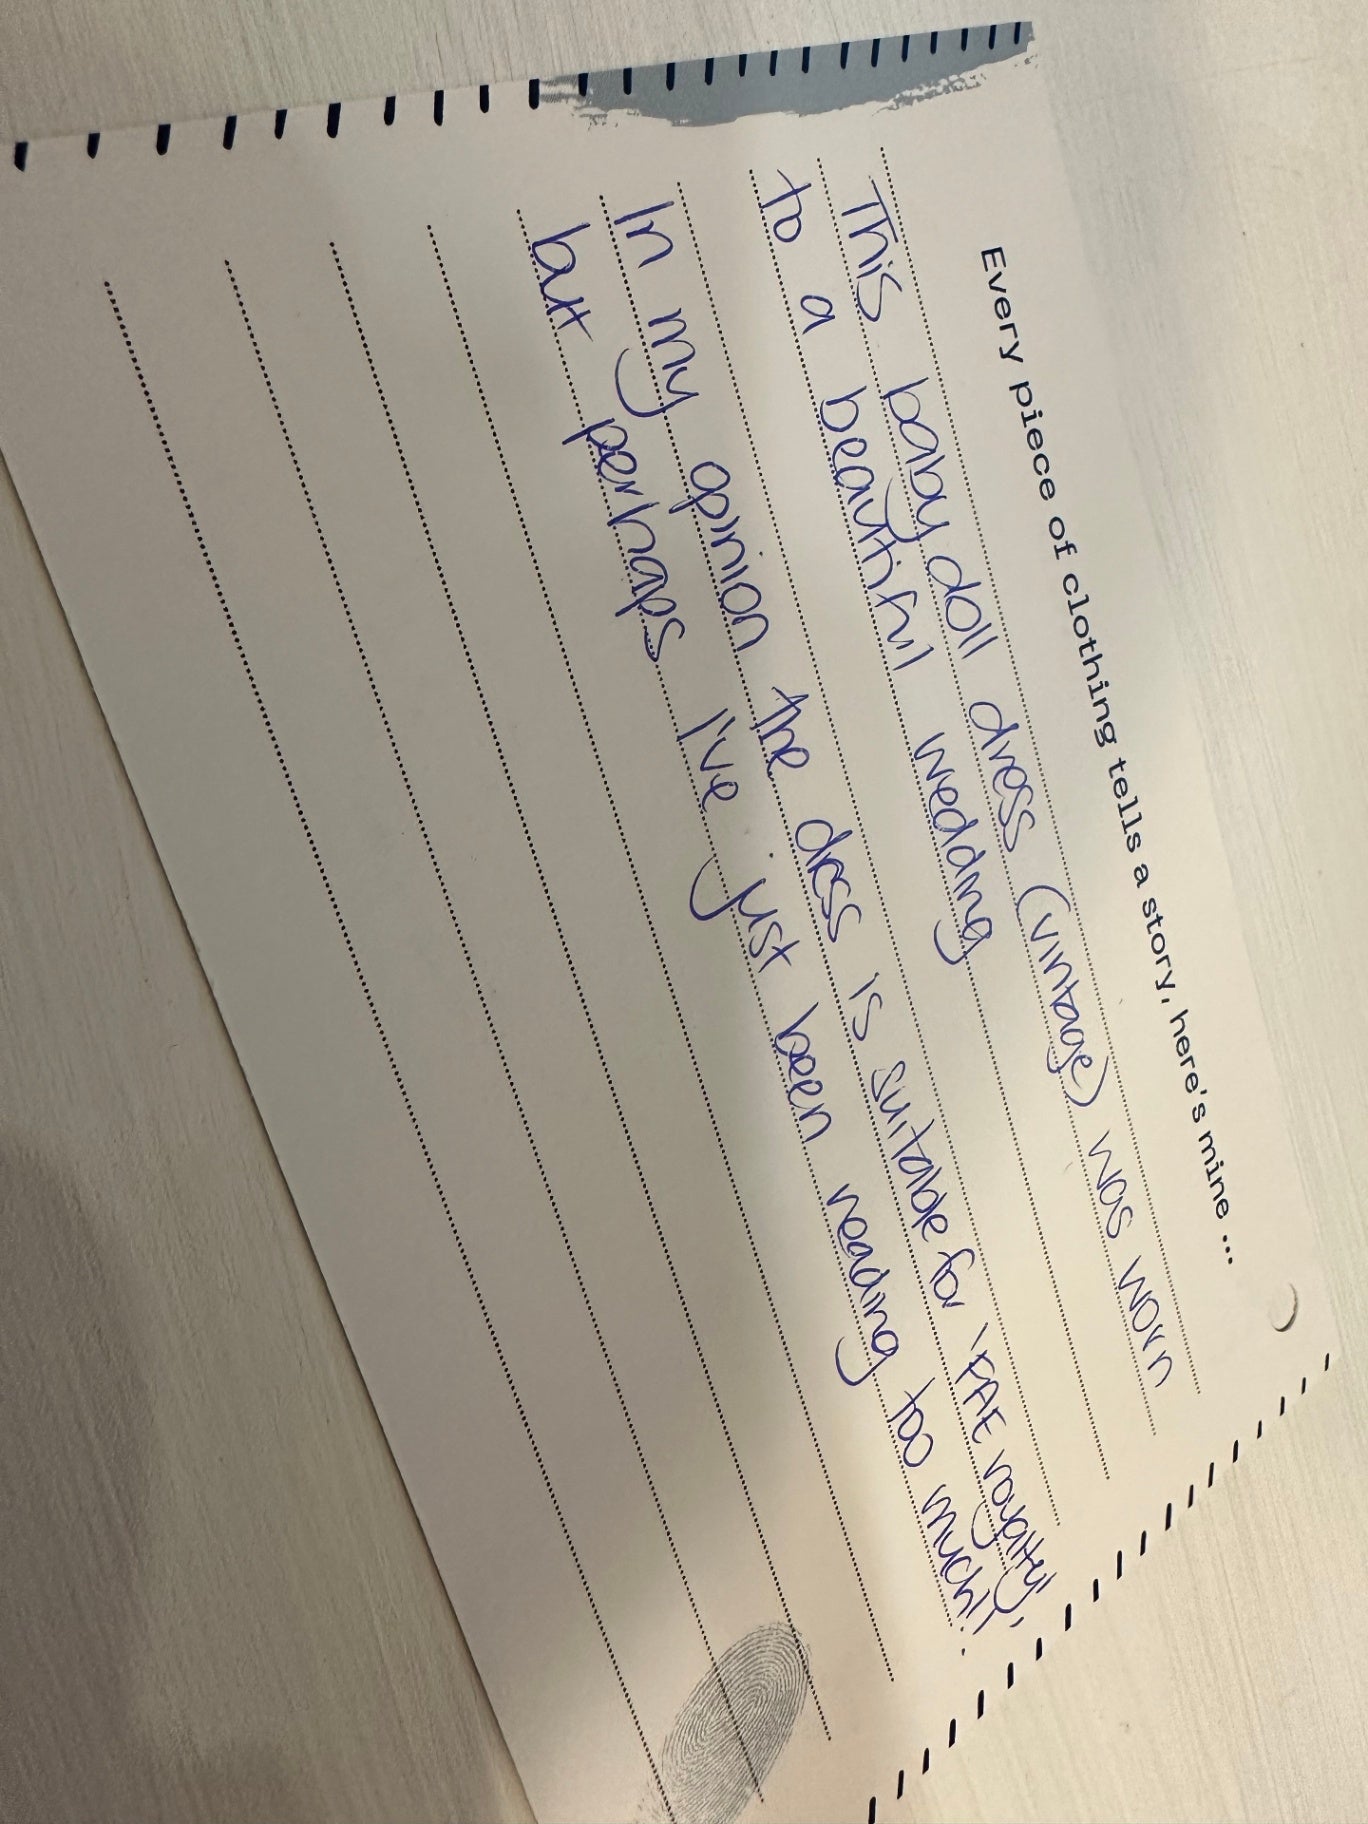 Every piece of clothing tells a story, here's mine ...
This babydoll dress (vintage) was worn
to a beautiful wedding
In my opinion the dress is suitable for 'FAE royalty',
but perhaps I've just been reading too much!!